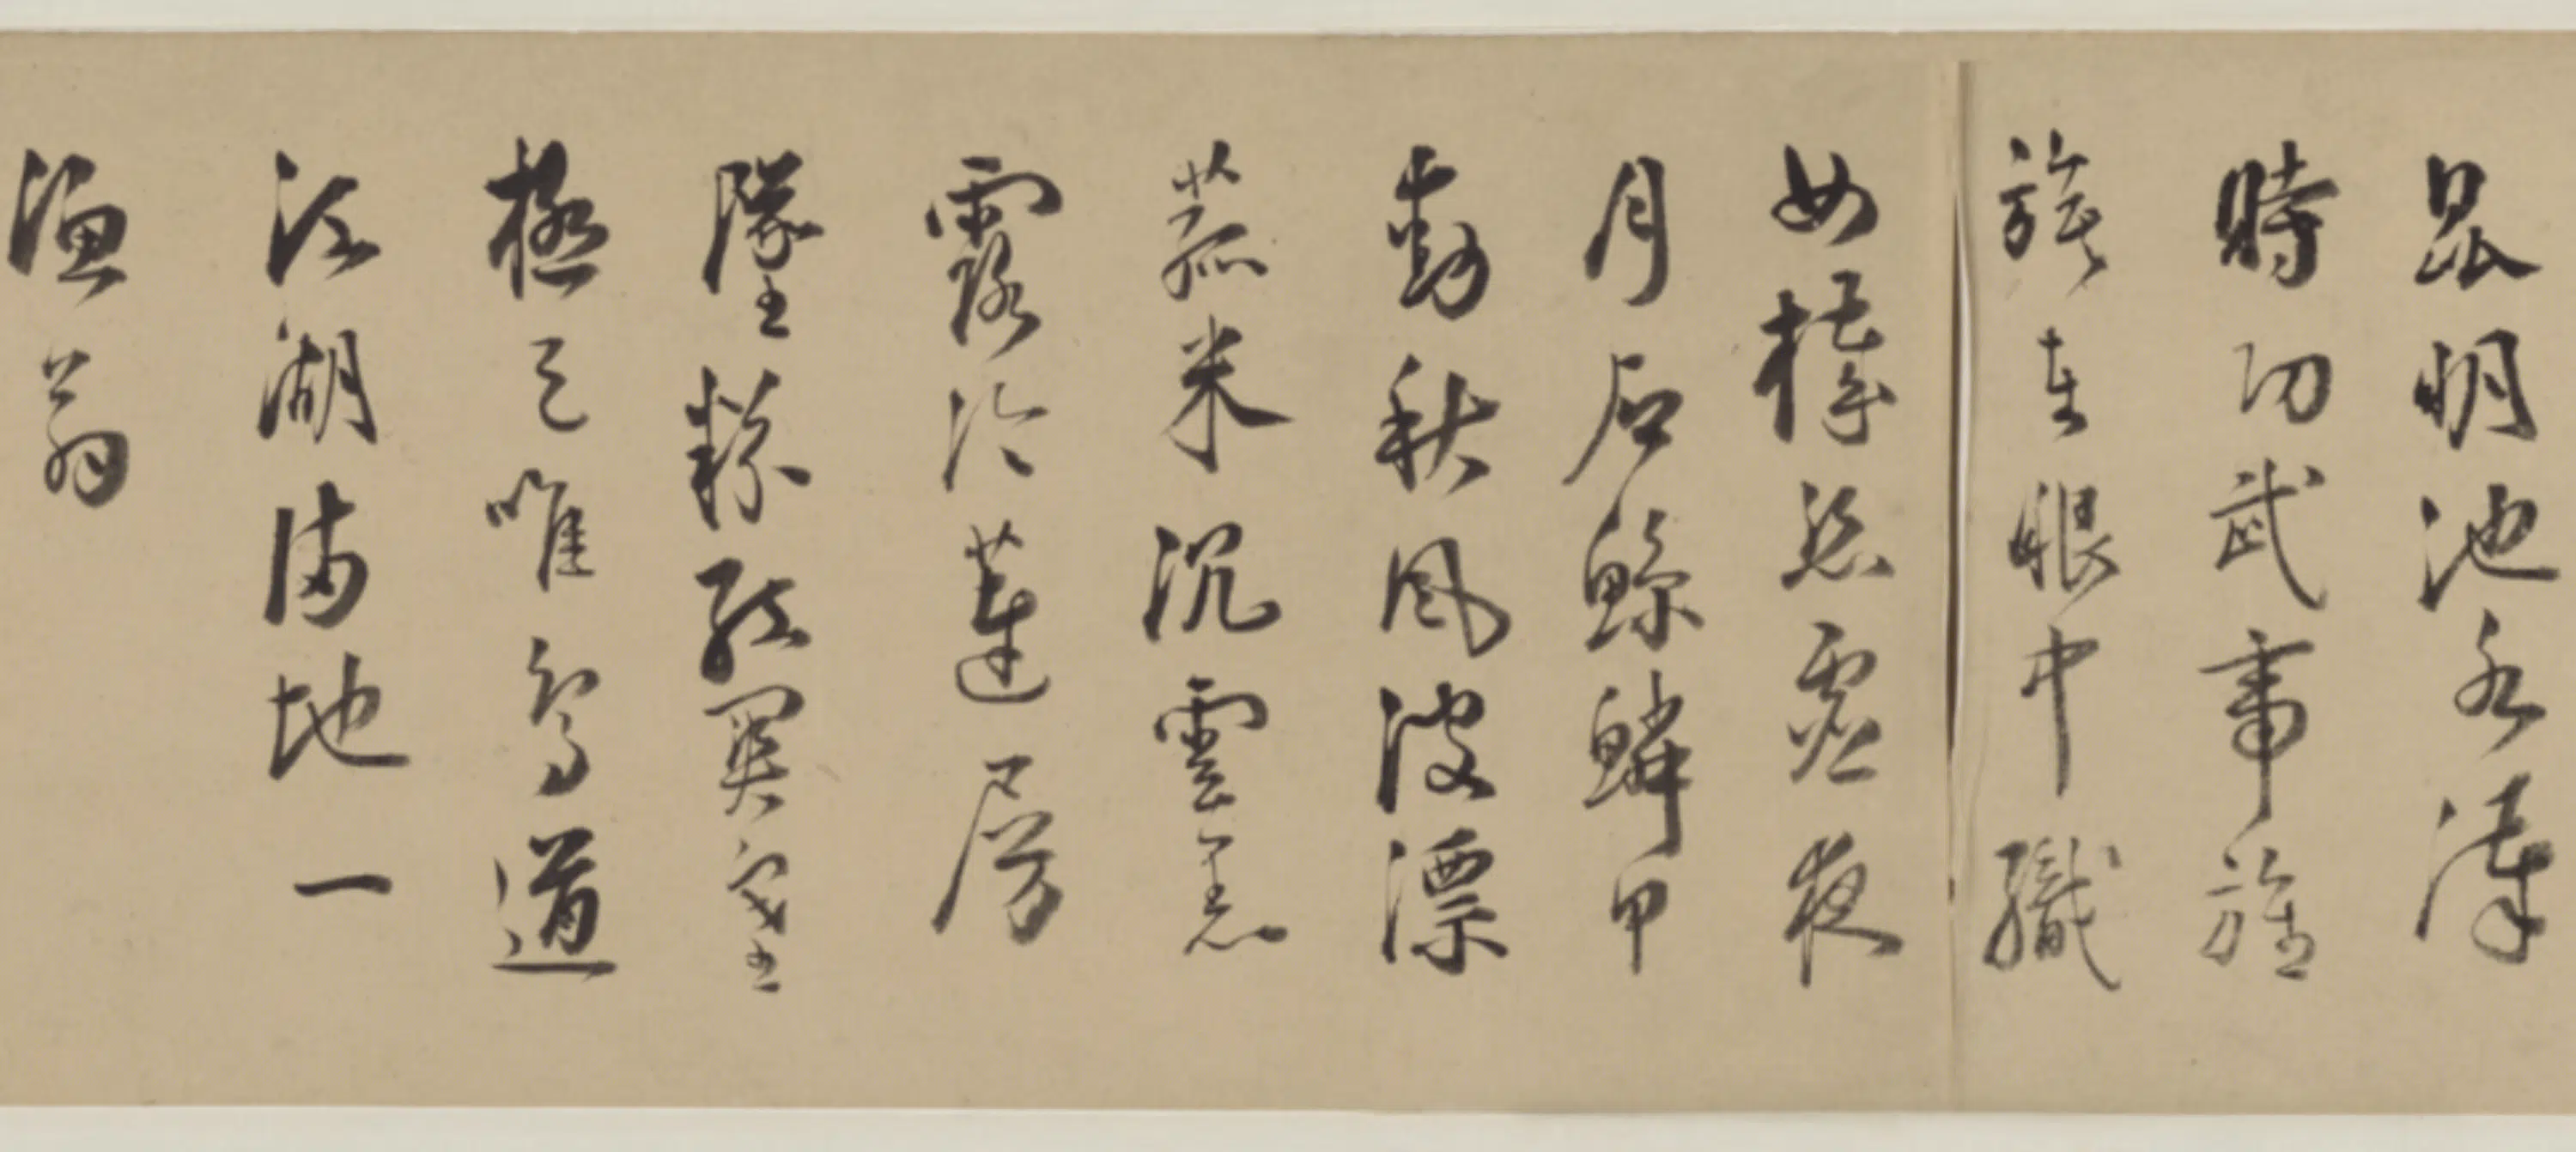 昆明池水漢
時功武帝旌
旗在眼中織
女機絲虛夜
月石鯨鱗甲
動秋風波漂
菰米沉雲黑
露冷蓮房
墜粉紅關塞
極天唯鳥道
江湖滿地一
漁翁